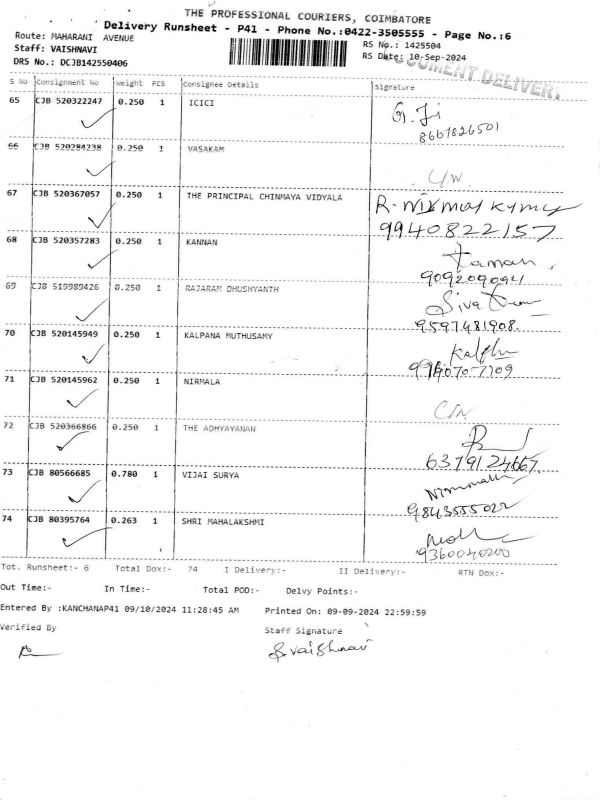 THE PROFESSIONAL COURIERS, COIMBATORE
Delivery Runsheet - P41 - Phone No.:0422-3505555 - Page No.:6
Route: MAHARANI AVENUE
RS No.: 1425504
Staff: VAISHNAVI
RS Date: 10-Sep-2024
DRS No.: DCJB142550406
DOCUMENT DELIVERY
S No Consignment No Weight PCS Consignee Details Signature
65 CJB 520322247 0.250 1 ICICI
8667826501
66 CJB 520284238 0.250 1 VASAKAM
67 CJB 520367057 0.250 1 THE PRINCIPAL CHINMAYA VIDYALA
9940822157
68 CJB 520357283 0.250 1 KANNAN
9092090941
69 CJB 519989426 0.250 1 RAJARAM DHUSHYANTH
Siva
9597481908.
70 CJB 520145949 0.250 1 KALPANA MUTHUSAMY
71 CJB 520145962 0.250 1 NIRMALA
72 CJB 520366866 0.250 1 THE ADHYAYANAN
6379124667.
73 CJB 80566685 0.780 1 VIJAI SURYA
9843555022
74 CJB 80395764 0.263 1 SHRI MAHALAKSHMI
9360040200
Tot. Runsheet:- 6 Total Dox:- 74 I Delivery:- II Delivery:- RTN Dox:-
Out Time:- In Time:- Total POD:- Delvy Points:-
Entered By :KANCHANAP41 09/10/2024 11:28:45 AM Printed On: 09-09-2024 22:59:59
Verified By Staff Signature
S. Vaishnavi